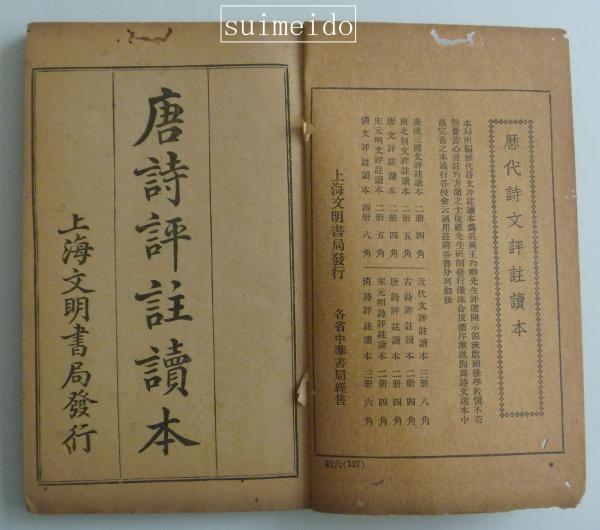 suimeido
歷代詩文評註讀本
本局所編歷代詩文評註讀本爲吳興王均卿先生評選開示源流啟迪後學矜慎不苟
最完善之本通行各校僉云適用茲將各書分列如後
秦漢三國文評註讀本 二册 四角
南北朝文評註讀本 二册 五角
唐文評註讀本 二册 四角
宋元明文評註讀本 二册 五角
清文評註讀本 四册 八角
近代文評註讀本 三册 八角
古詩評註讀本 二册 四角
唐詩評註讀本 二册 四角
宋元明詩評註讀本 二册 四角
清詩評註讀本 三册 六角
上海文明書局發行 各省中華書局經售
(127)
唐詩評註讀本
上海文明書局發行